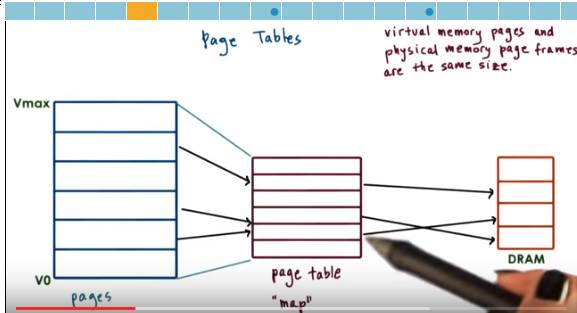 Page Tables
virtual memory pages and
physical memory page frames
are the same size.
Vmax
V0
pages
page table
"map"
DRAM